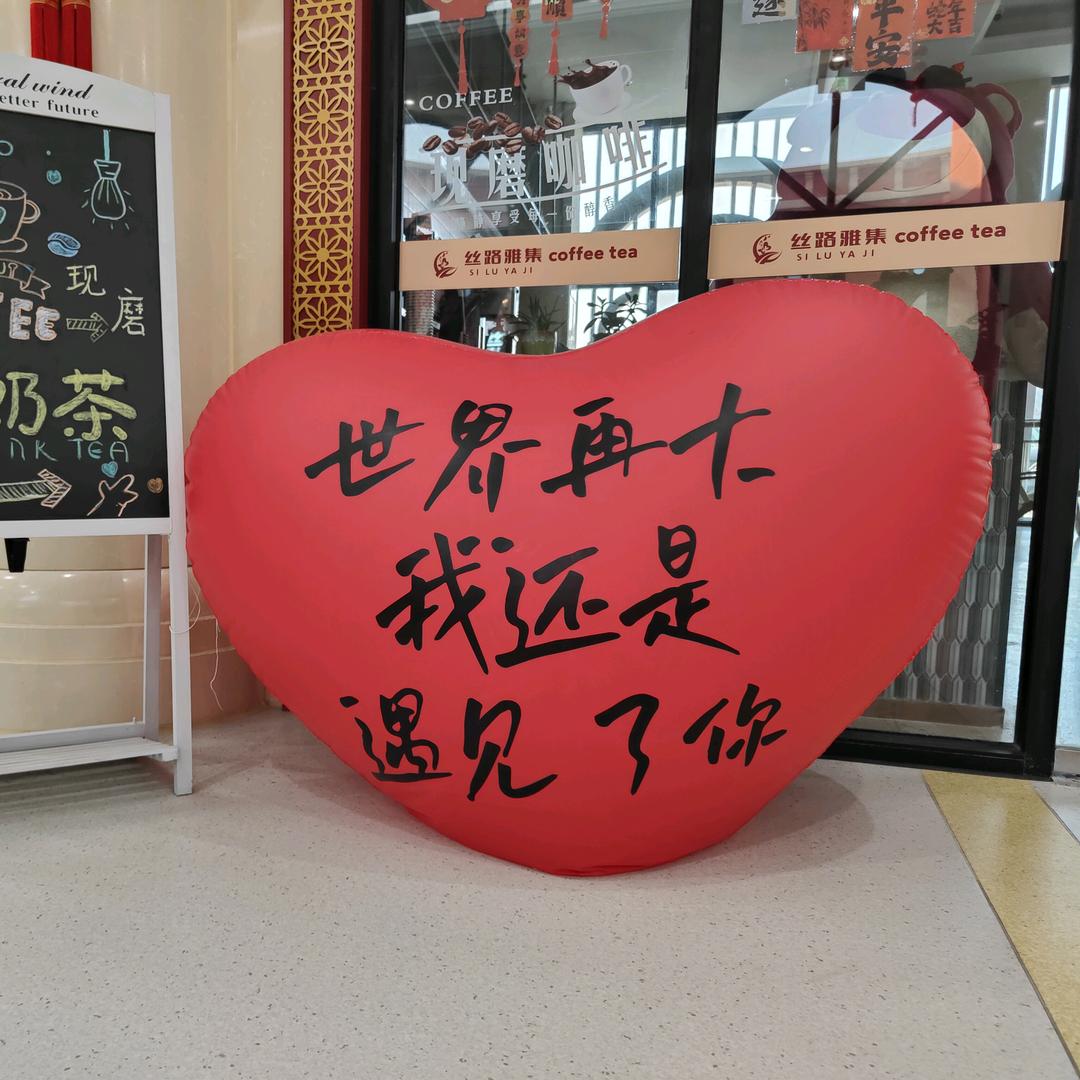 世界再大
我还是
遇见了你
COFFEE
现磨咖啡
享受每一份醇香
丝路雅集 coffee tea
SI LU YA JI
丝路雅集 coffee tea
SI LU YA JI
平安
wind
etter future
现磨
奶茶
TEA